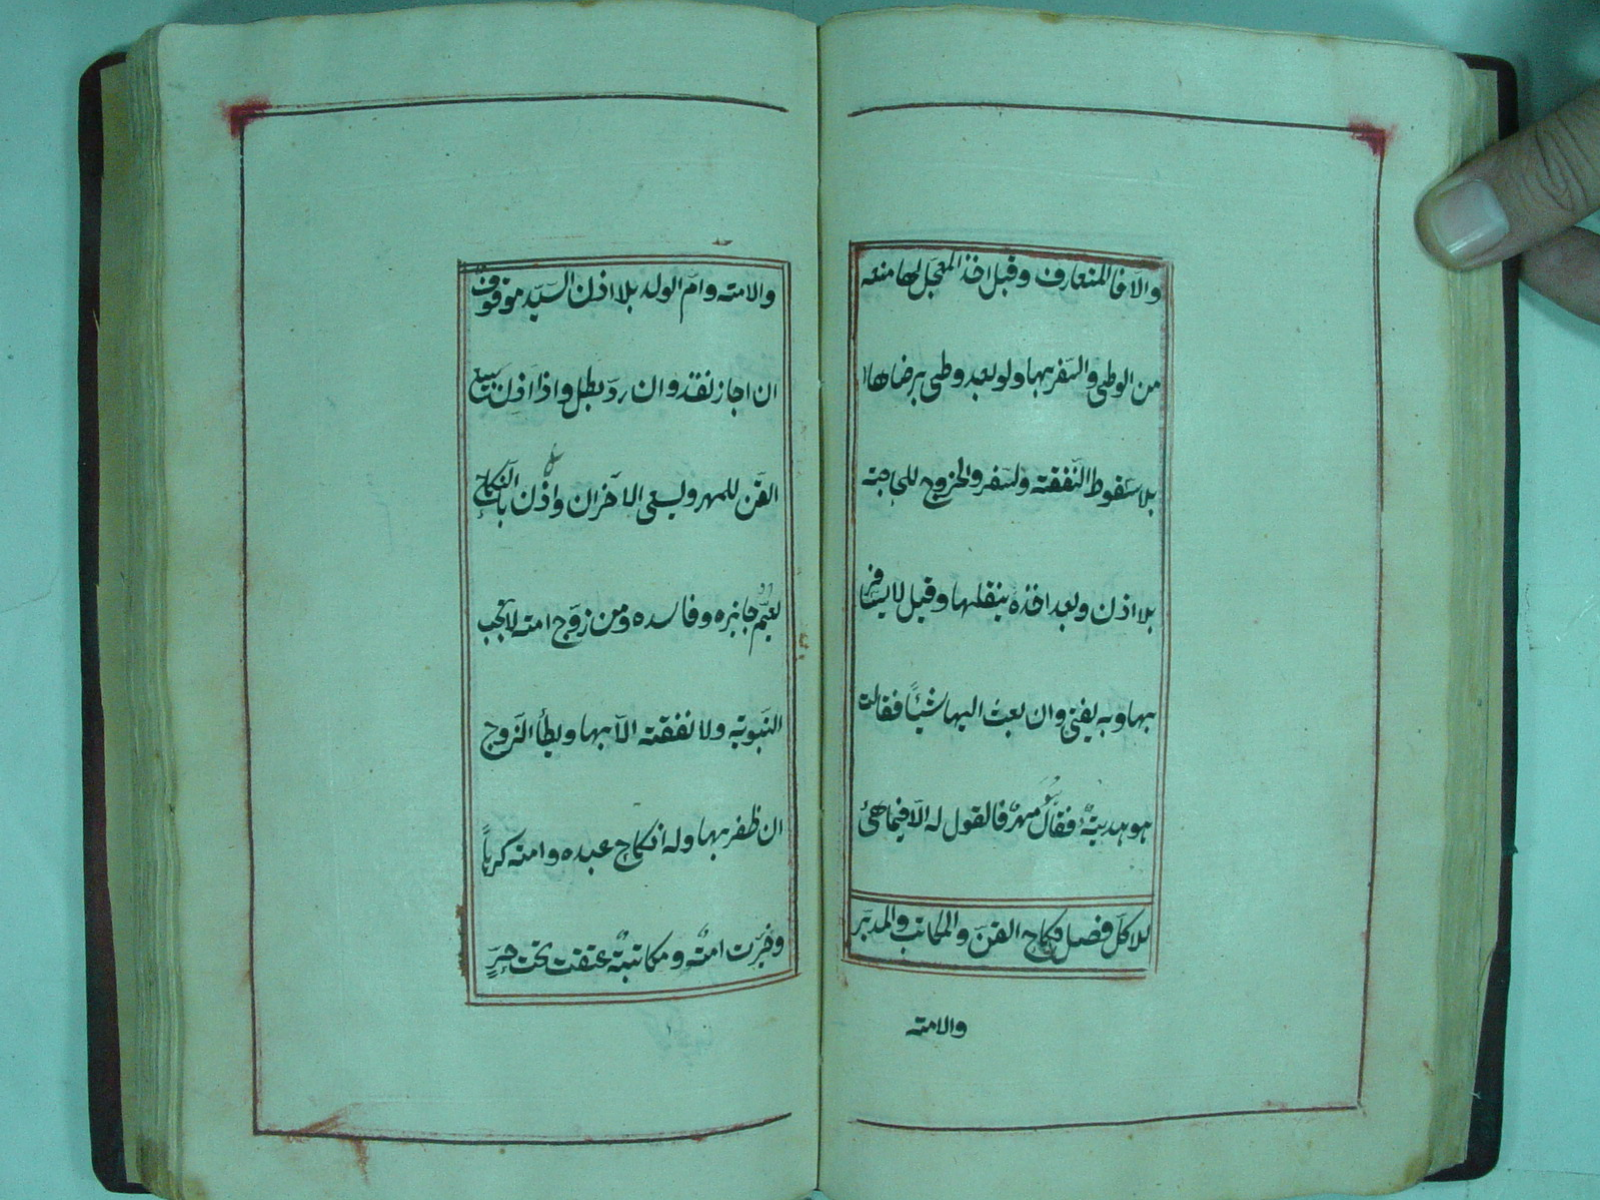 والا فالمتعارف وقبل اخذ المعجل لها منعه
من الوطئ والسفر بها ولو بعد وطئ برضاها
بلا سقوط النفقة ولسفر والخروج للحاجة
بلا اذن وبعد اخذه ينقلها وقيل لا يسافر
بها وبه يفتى وان بعث اليها شيئاً فقالت
هو هدية فقال مهر فالقول له الا فيما هيئ
للاكل فصل نكاح القن والمكاتب والمدبر
والامته
والامته وام الولد بلا اذن السيد موقوف
ان اجاز نفذ وان رد بطل واذا اذن يبيع
القن للمهر وليسعى الاخران واذن بالنكاح
لعبده جائزه وفاسده ومن زوج امته لا تجب
التبوية ولا نفقته الا بها ويطأ الزوج
ان ظفر بها وله انكاح عبده وامته كرهاً
وخيرت امة ومكاتبة عتقت تحت حر